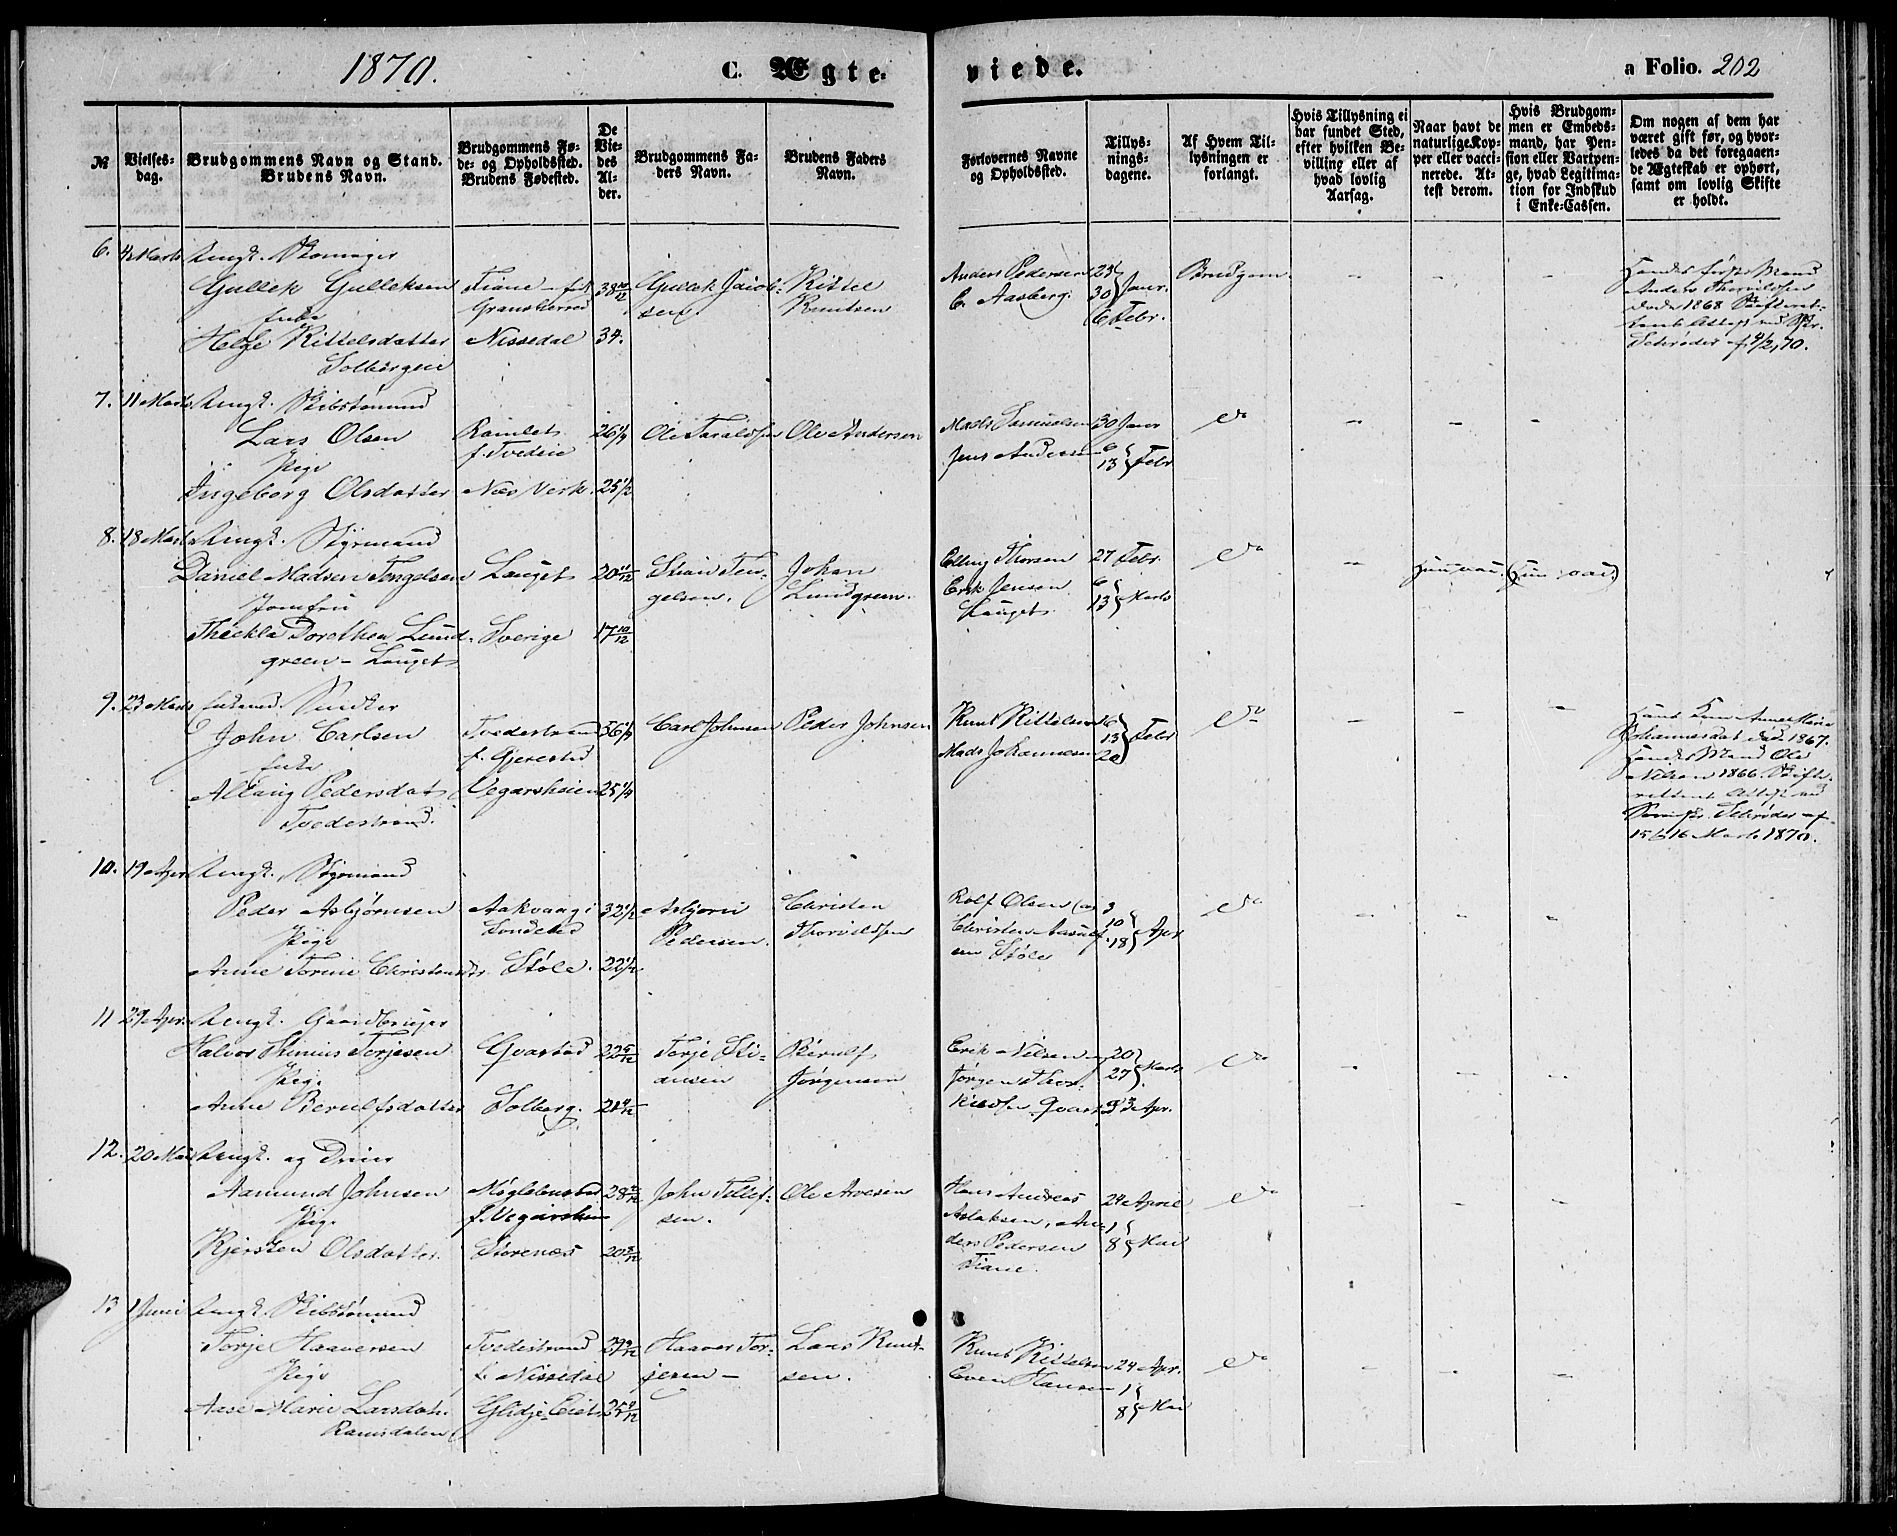 1870.
C. Ægte-
viede.
a Folio. 202
№
Vielses-
dag.
Brudgommens Navn og Stand.
Brudens Navn.
Brudgommens Fø-
de- og Opholdssted.
Brudens Fødested.
De
Vie-
des
Al-
der.
Brudgommens Fa-
ders Navn.
Brudens Faders
Navn.
Forlovernes Navne
og Opholdssted.
Tillys-
nings-
dagene.
Af Hvem Til-
lysningen er
forlangt.
Hvis Tillysning ei
har fundet Sted,
efter hvilken Be-
villing eller af
hvad lovlig
Aarsag.
Naar havt de
naturlige Kop-
per eller vacci-
nerede. At-
test derom.
Hvis Brudgom-
men er Embeds-
mand, har Pen-
sion eller Vartpen-
ge, hvad Legitima-
tion for Indskud
i Enke-Cassen.
Om nogen af dem har
været gift før, og hvor-
ledes da det foregaaen-
de Ægteskab er ophørt,
samt om lovlig Skifte
er holdt.
6. 4 Marts Ungk. Skomager
Gullek Gulleksen
Enke
Helge Kittelsdatter
Solbergeie
Fiane - f.
Gransherred
Nissedal
38 10/12
34.
Gullek Jacob-
sen.
Kittel
Knutsen
Anders Pedersen
C. Aasberg.
23
30 } Janr.
6 Febr.
Brudgom.
Hendes første Mand
Anders Thorvildsen
døde 1868
Schrøder af 4/2 70.
7. 11 Marts Ungk. Skibstømmd
Lars Olsen
Pige
Ingeborg Olsdatter
Ramlet
f. Tvedeie
Næs Verk.
26 1/4
25 1/2
Ole Taraldsen
Ole Andersen
Mads Samuelsen
Jens Andersen
30 Janr
6
13 } Febr
do
8. 18 Marts Ungk. Styrmand
Daniel Madsen Tengelsen
Jomfru
Theckla Dorothea Lund-
green - Lauget
Lauget
Sverige
20 11/12
17 10/12
Stian Ten-
gelsen.
Johan
Lundgreen.
Elling Thorsen
Erik Jensen
Lauget.
27 Febr.
6
13 } Marts
do
9. 23 Marts Enkemd. Snedker
John Carlsen
Enke
Allaug Pedersdat
Tvedestrand.
Tvedestrand
f. Gjerestad
Vegarsheien
36 1/4
25 1/4
Carl Johnsen
Peder Johnsen
Knut Kittelsen
Mads Johannesen
6
13
20 } Febr
do
Hans Kone Anne Maria
Johannesdat døde 1867.
Hendes Mand Ole
Nilsen 1866.
Schrøder af
15 & 16 Marts 1870.
10. 19 Apr. Ungk., Styrmand
Peder Asbjørnsen
Pige
Anne Torine Christensdr.
Aakvaag i
Søndeled
Støle.
32 1/2
22 1/2
Asbjørn
Pedersen.
Christen
Thorvildsen
Rolf Olsen
Christen
Støle
3
10
18 } Apr
do
11 29 Apr. Ungk. Gaardbruger
Halvor Thinius Torjesen
Pige
Anne Berulfsdatter
Qvastad
Solberg.
22 5/12
Torje Sti-
ansen
Berulf
Jørgensen
Erik Nilsen
Jørgen Thor-
20
27 } Marts
3 Apr.
do
12. 20 Mai Ungk. og Dreier
Aamund Johnsen
Pige
Kjersten Olsdatter.
f. Vegarshei
Storenæs
John Tellef-
sen.
Ole Aresen
Hans Andreas
Aslaksen, An-
ders Pedersen
Fiane.
24 April
1
8 } Mai
do
13 1 Juni Ungk. Skibstømmd
Torje Haaversen
Pige
Aase Marie Larsdatr.
Ramsdalen
Tvedestrand
f. Nissedal
Glidje Eiet
Haaver Tor-
jesen -
Lars Knut-
sen.
Knut Kittelsen
Even Hansen
24 Apr.
1
8 } Mai
do